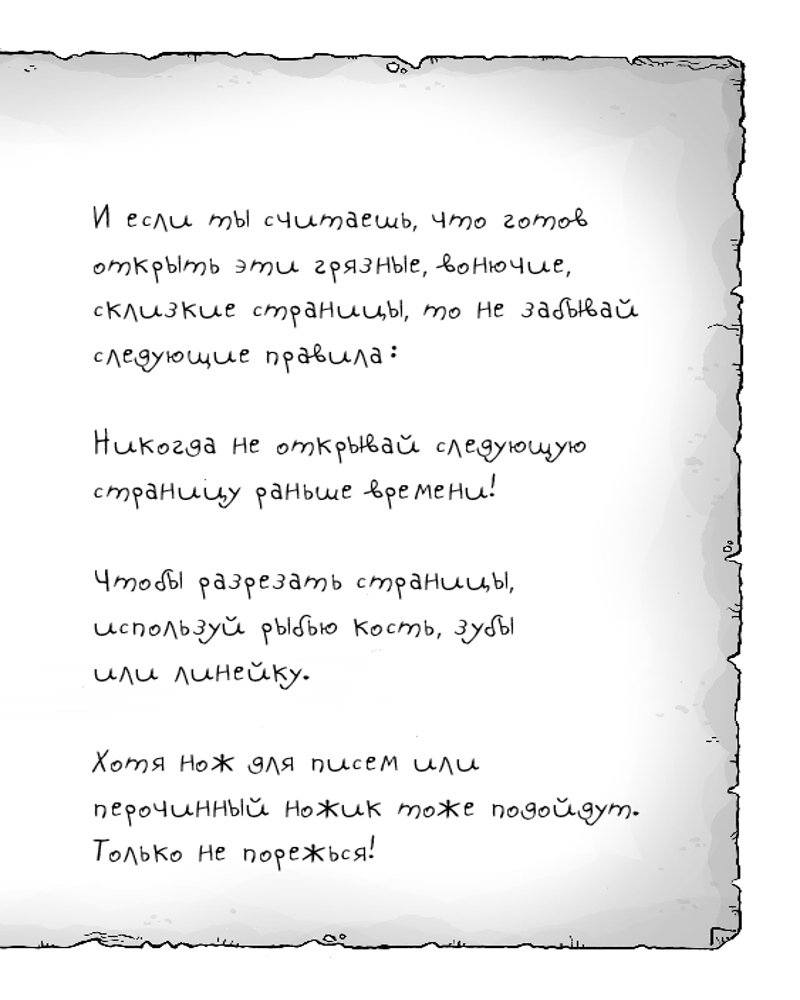 И если ты считаешь, что готов
открыть эти грязные, вонючие,
склизкие страницы, то не забывай
следующие правила:
Никогда не открывай следующую
страницу раньше времени!
Чтобы разрезать страницы,
используй рыбью кость, зубы
или линейку.
Хотя нож для писем или
перочинный ножик тоже подойдут.
Только не порежься!